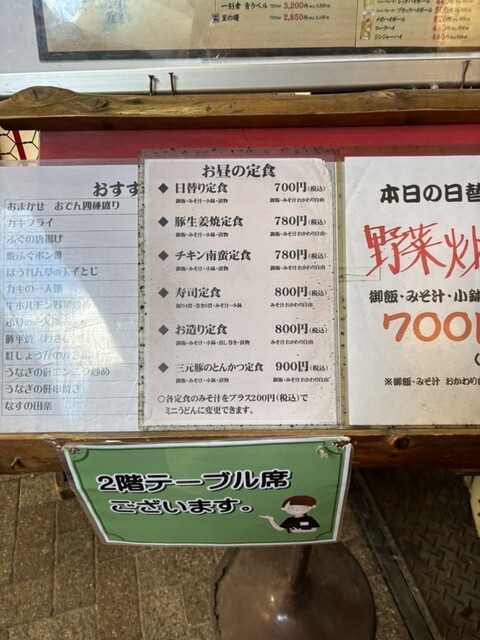 一刻者 青ラベル 720ml 3,200円
2,850円
500円
メガハイボール
コークハイ 480円
ジンジャーハイ 480円
おすす
おまかせ おでん四種盛り
カキフライ
ふぐの唐揚げ
焼ふぐポン酢
ほうれん草の玉子とじ
うなぎの肝串焼き
なすの田楽
お昼の定食
◆ 日替り定食 700円(税込)
御飯・みそ汁・小鉢・漬物 御飯・みそ汁おかわり自由
◆ 豚生姜焼定食 780円(税込)
御飯・みそ汁・小鉢・漬物 御飯・みそ汁おかわり自由
◆ チキン南蛮定食 780円(税込)
御飯・みそ汁・小鉢・漬物 御飯・みそ汁おかわり自由
◆ 寿司定食 800円(税込)
みそ汁おかわり自由
◆ お造り定食 800円(税込)
御飯・みそ汁・小鉢・出し巻き・漬物 御飯・みそ汁おかわり自由
◆ 三元豚のとんかつ定食 900円(税込)
御飯・みそ汁・小鉢・漬物 御飯・みそ汁おかわり自由
○各定食のみそ汁をプラス200円(税込)で
ミニうどんに変更できます。
本日の日替
野菜炒
御飯・みそ汁・小鉢
700円
※御飯・みそ汁 おかわり
2階テーブル席
ございます。